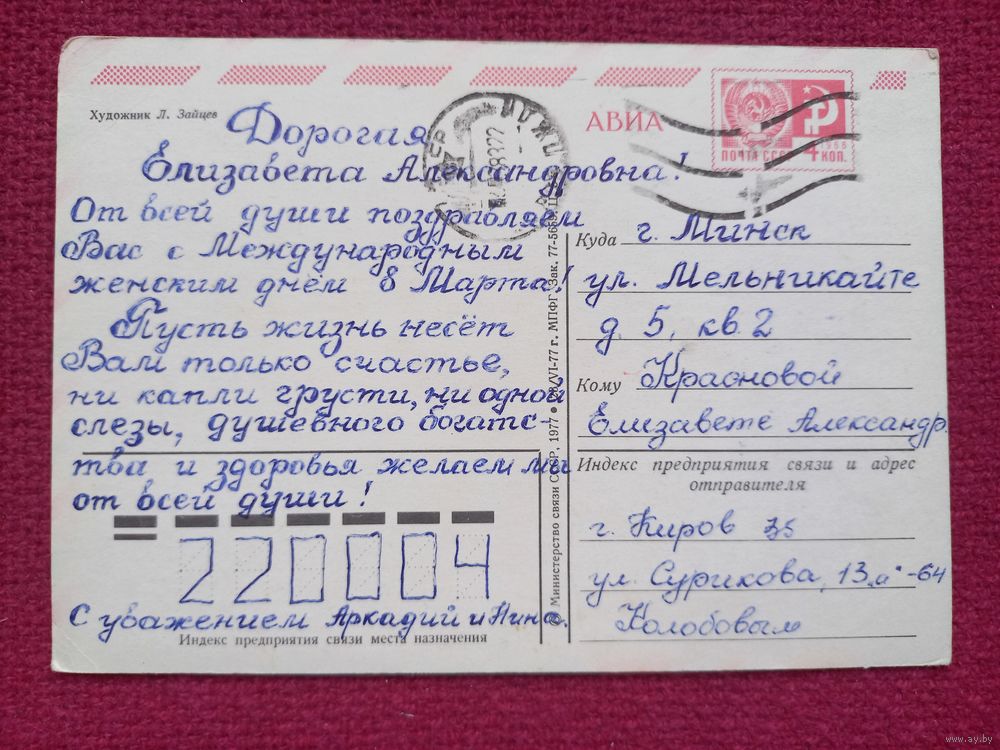 Художник Л. Зайцев
Дорогая
Елизавета Александровна!
От всей души поздравляем
Вас с Международным
женским днём 8 Марта!
Пусть жизнь несёт
Вам только счастье,
ни капли грусти, ни одной
слезы, душевного богатс-
тва и здоровья желаем мы
от всей души!
220004
С уважением Аркадий и Нина.
Индекс предприятия связи места назначения
© Министерство связи СССР, 1977 • 28/VI-77 г. МПФГ. Зак. 77-5659.
АВИА
ПОЧТА СССР
1966
4 КОП.
Куда г. Минск
ул. Мельникайте
д. 5, кв. 2
Кому Красновой
Елизавете Александр.
Индекс предприятия связи и адрес
отправителя
г. Киров
ул. Сурикова, 13 „а"-64
Колобовым
www.ay.by